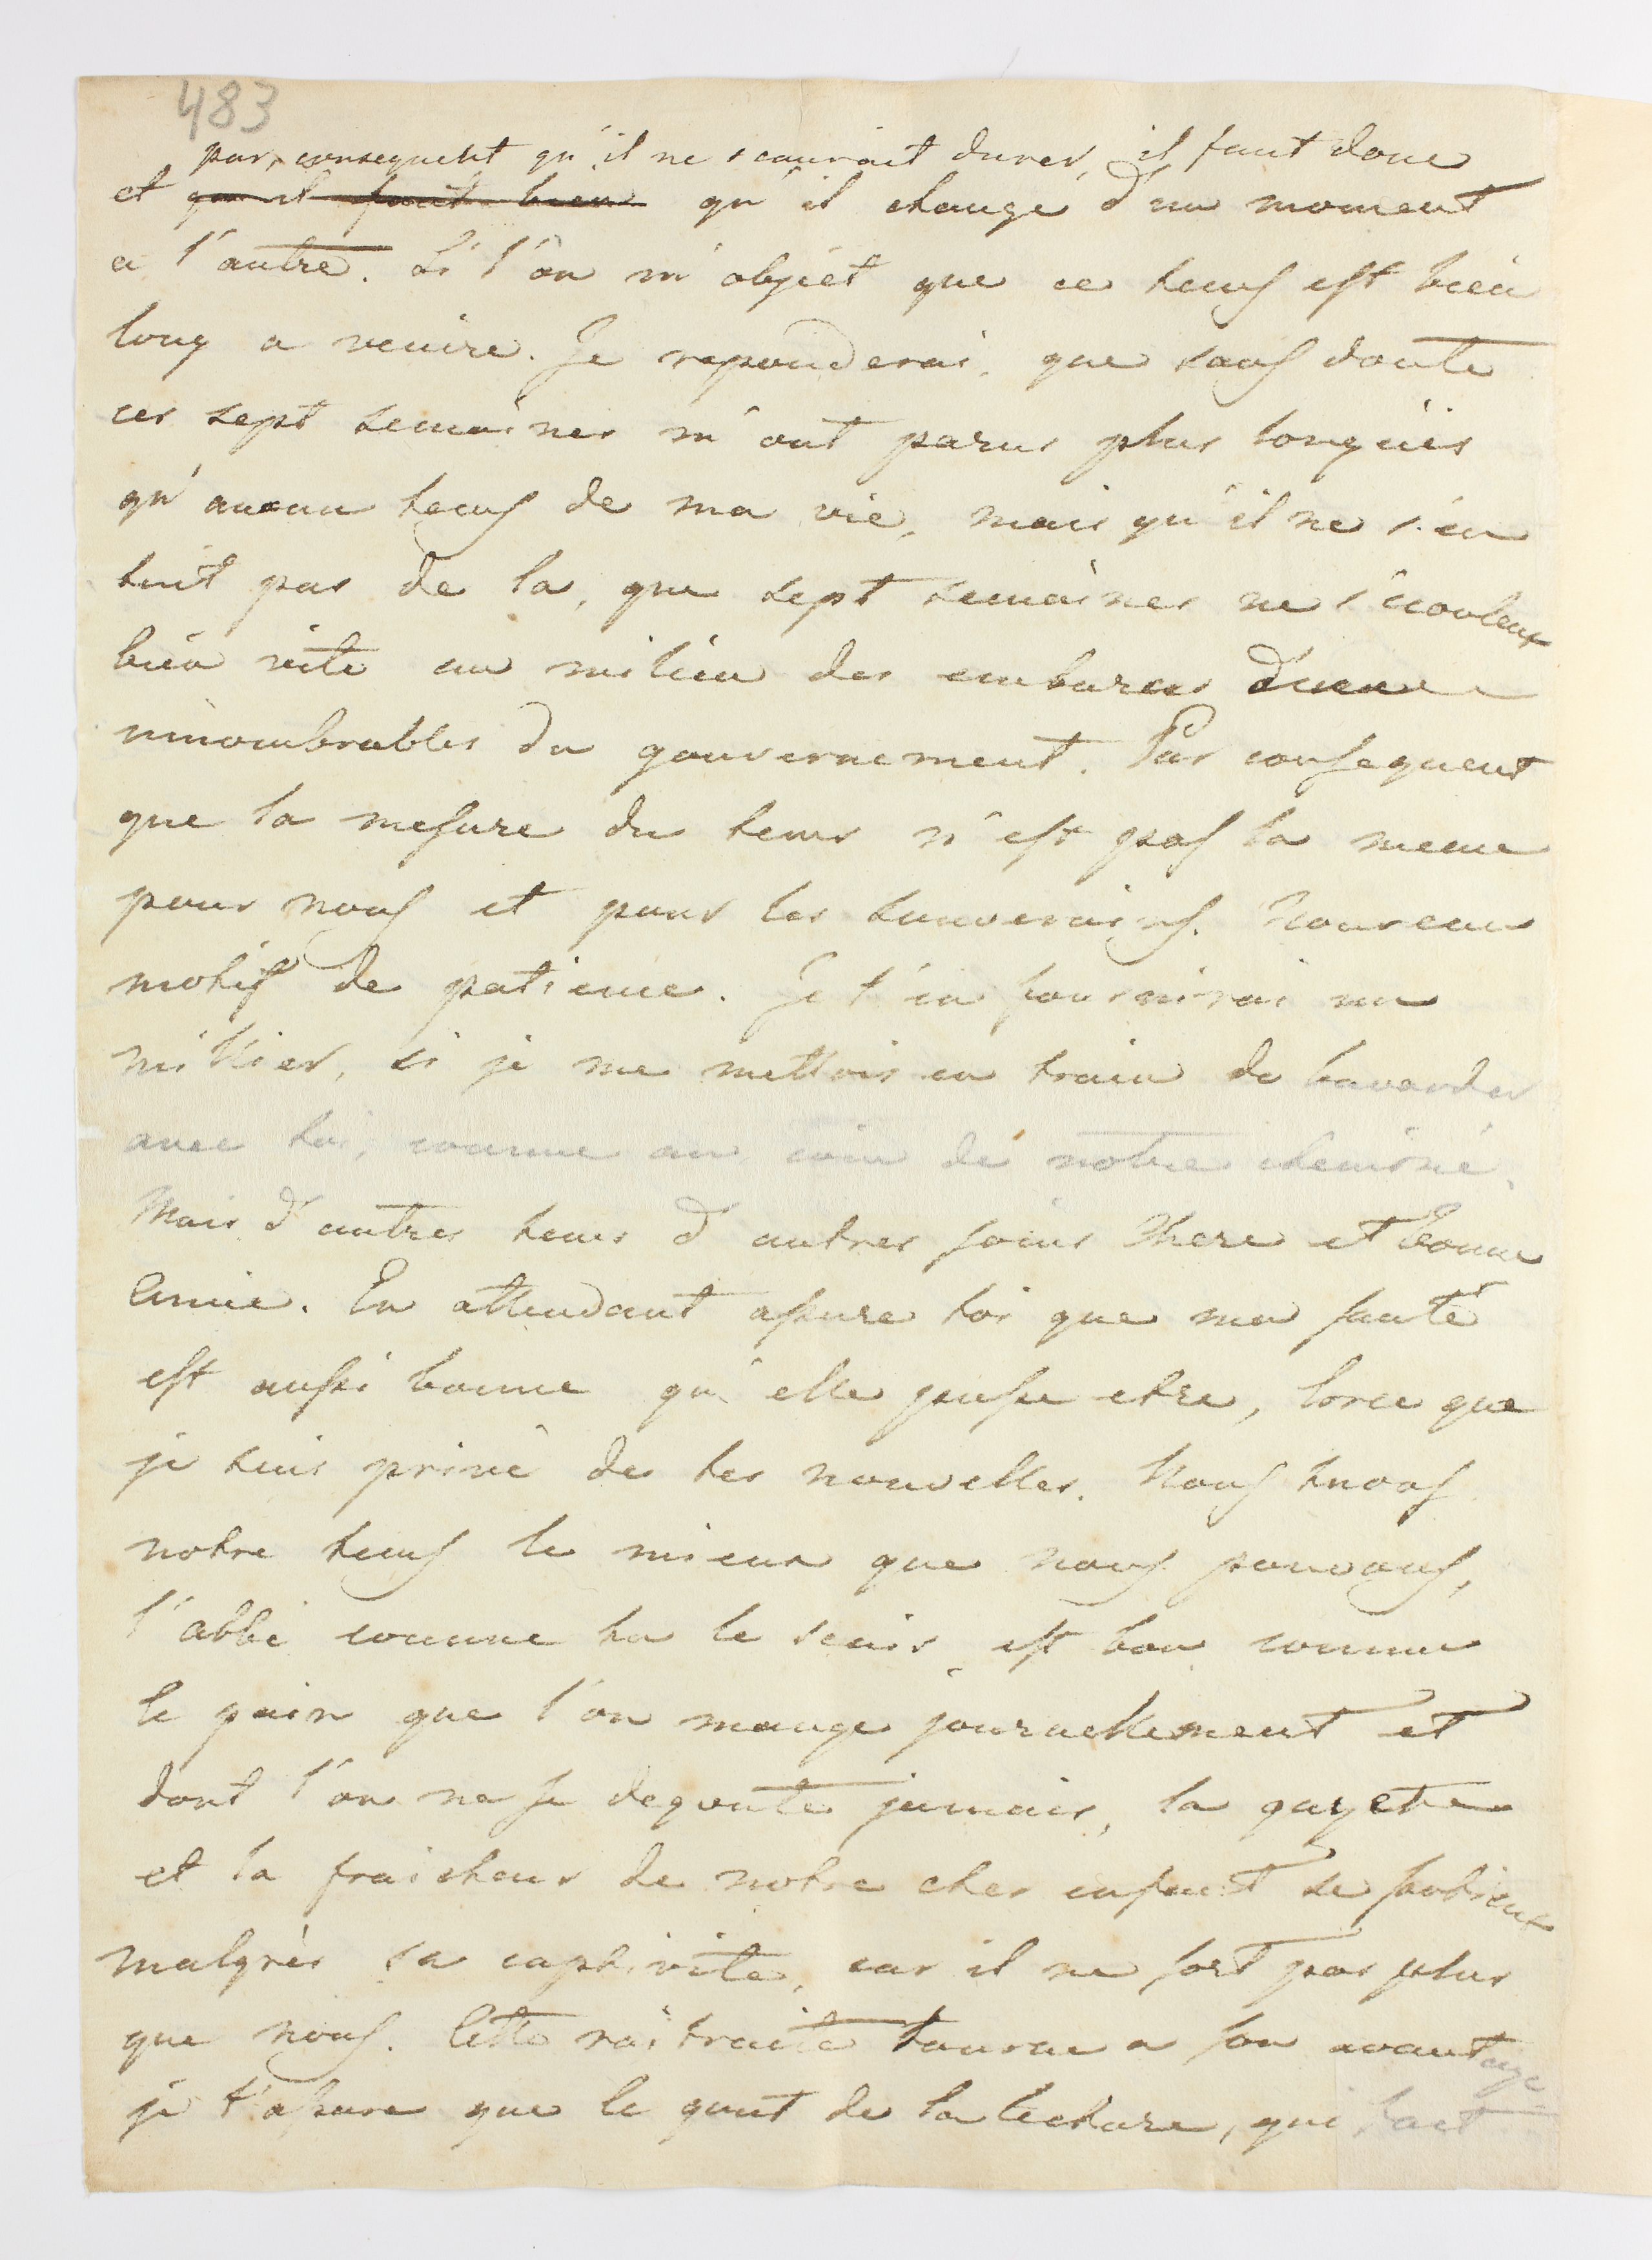 483
par consequent qu'il ne scauroit durer, il faut donc
et qu il faut bien qu'il change d'un moment
a l'autre. Si l'on m'objèct que ce tems est bien
long a venire. Je reponderai, que sans doute
ces sept semaines m'ont parus plus longues
qu'aucun tems de ma vie, mais qu'il ne s'en
suit pas de la, que sept semaines ne s'écoulent
bien vite au milieu des embaras
innombrables du gouvernement. Par consequent
que la mesure du tems n'est pas la meme
pour nous et pour les souverains. Nouveau
motif de patience. Je t'en fournirai un
millier, si je me mettois en train de bavarder
avec toi, comme au coin de notre cheminé.
Mais d'autres tems d'autres soins Chere et bonne
Amie. En attendant assure toi que ma santé
est aussi bonne qu'elle puisse etre, lorce que
je suis privé de tes nouvelles. Nous tuons
notre tems le mieux que nous pouvons,
l'abbé comme tu le scais, est bon comme
le pain que l'on mange journellement et
dont l'on ne se degoute jamais, la gayeté
et la fraicheur de notre cher enfant se soutient
malgrès sa captivité, car il ne sort pas plus
que nous. Cette raitraite tourne a son avantage
je t'assure que le gout de la lecture, qui fait